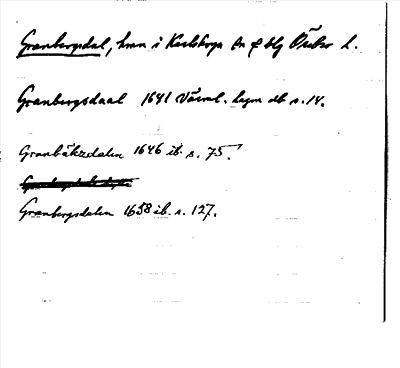 Granbergsdal, hmn i Karlskoga sn o blg Örebro l.
Granbergsdaal 1641 Värml. lagm db s. 14.
Granbäkzdalen 1646 ib. s. 75.
Granbergsdalen 1658 ib. s. 127.